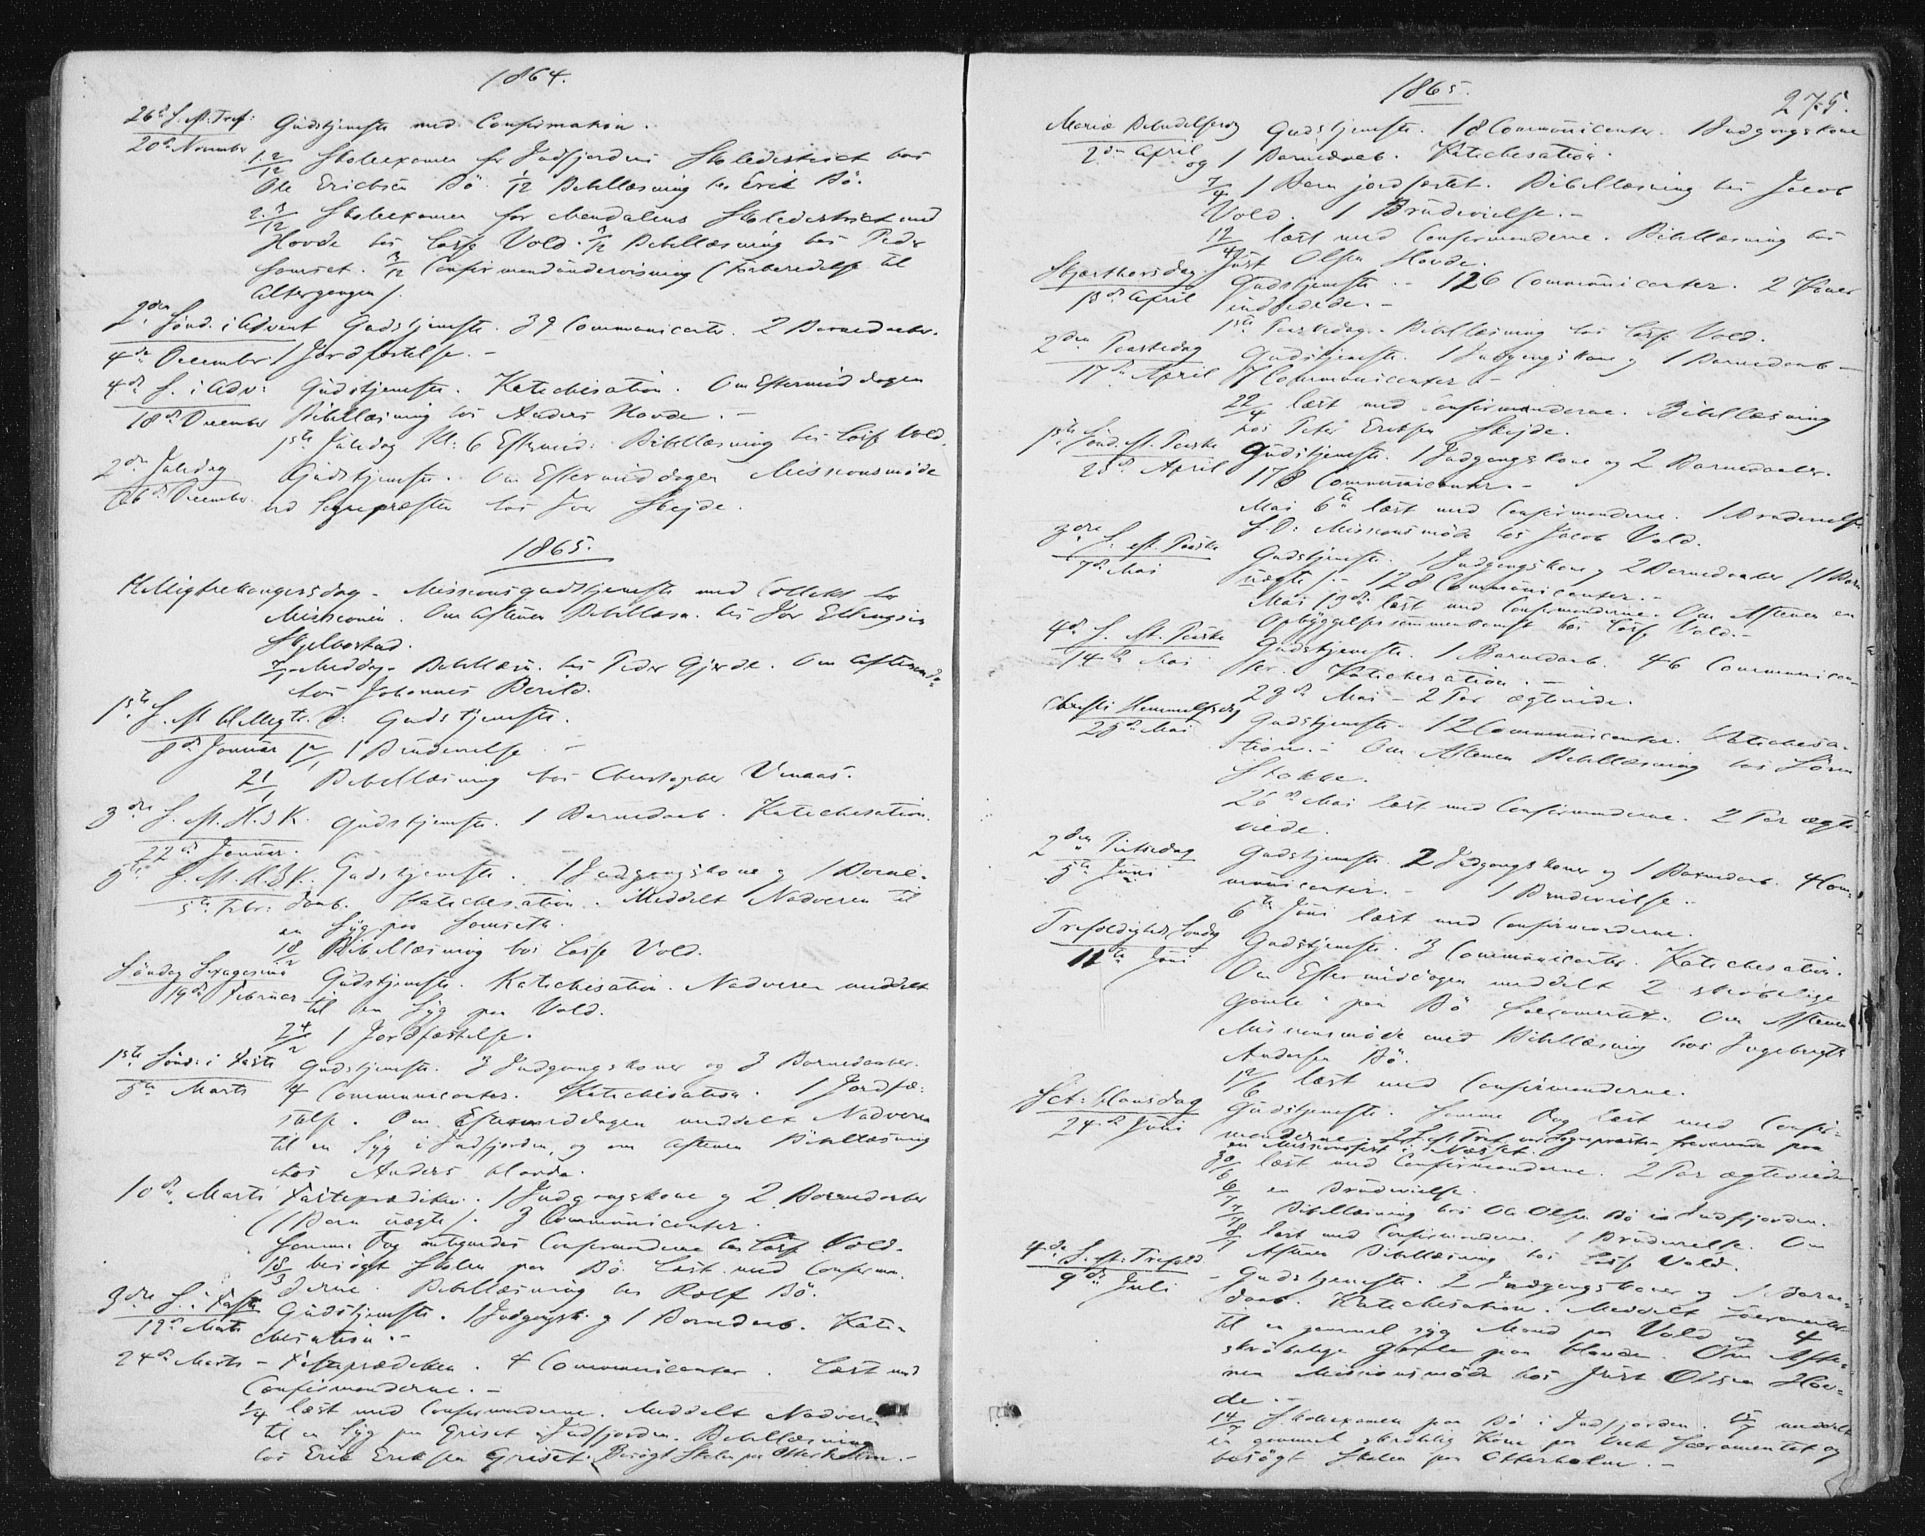 1864.
26de S. eft. Tref: Gudstjeneste med Confirmation.
20de November
1.2/12 Skoleexamen for Indfjordens Skoledistrict hos
Ole Ericksen Bö. 1/12 Bibellæsning hos Erik Bö.
2.3/12 Skoleexamen for Skoledistrict med
Hovde hos Lars Vold. 3/12 Bibellæsning hos Peder
Somset. 3/12 Confirmandundervisning (Forberedelse til
Altergangen).
2den Sönd. i Advent Gudstjeneste. 39 Communicanter. 2 Barnedaaber.
4de December 1 Jordfæstelse. -
4de S. i Adv: Gudstjeneste. Katechisation. Om Eftermiddagen
18de December Bibellæsning hos Anders Hovde. -
1ste Juledag Kl: 6 Eftermid: Bibellæsning hos Lars Vold.
2den Juledag Gudstjeneste. Om Eftermiddagen Missionsmöde
26de December ved Sognepræsten hos Iver Skejde.
1865.
Helligtrekongersdag - Missionsgudstjeneste med Collekt for
Missionen. Om Aftenen Bibellæsn. hos Iver
7/1 Middag - Bibellæsn. hos Peder Gjerde. Om Aftenen do
hos Johannes Berild.
1ste S. eft. Helligtr. K: Gudstjeneste.
8de Januar 12/1 1 Brudevielse. -
21/1 Bibellæsning hos Christopher Venaas.
3die S. eft. H. 3 K. Gudstjeneste. 1 Barnedaab. Katechisation.
22de Januar.
5te S. eft. H. 3 K. Gudstjeneste. 1 Indgangskone og 1 Barne-
5te Febr: daab. Katechisation. Meddelt Nadveren til
en Syg paa Somset.
18/2 Bibellæsning hos Lars Vold.
Söndag Sexagesima Gudstjeneste. Katechisation. Nadveren meddelt
19de Februar til en Syg paa Vold.
24/2 1 Jordfæstelse.
1ste Sönd: i Faste Gudstjeneste. 3 Indgangskoner og 3 Barnedaaber.
5te Marts 4 Communicanter. Katechisation. 1 Jordfæ-
stelse. Om Eftermiddagen meddelt Nadveren
til en Syg i Indfjorden, og om Aftenen Bibellæsning
hos Anders Hovde.
10de Marts Fasteprædiken. 1 Indgangskone og 2 Barnedaaber
(1 Barn uægte). 3 Communicanter.
Samme Dag antegnedes Confirmanderne hos Lars Vold.
18/3 besögt Skolen paa Bö. Læst med Confirman-
derne. Bibellæsning hos Rolf Bö.
3die S. i Faste Gudstjeneste. 1 Indgangsk. og 1 Barnedaab. Kate-
19de Marts chisation. -
24de Marts - Fasteprædiken. 4 Communicanter. Læst med
Confirmanderne. -
1/4 læst med Confirmanderne. Meddelt Nadveren
til en Syg paa Griset i Indfjorden. Bibellæsning
hos Erik Eriksen Griset. Besögt Skolen paa Otterholm. -
1865.
275.
Mariæ Bebudelsesdag Gudstjeneste. 18 Communicanter. 1 Indgangskone
2den April og 1 Barnedaab. Katechisation.
7/4 1 Barn jordfæstet. Bibellæsning hos Jacob
Vold. 1 Brudevielse. -
12/4 læst med Confirmanderne. Bibellæsning hos
Just Olsen Hovde.
Skjærthorsdag Gudstjeneste. - 126 Communicanter. 2 Koner
13de April indledede. -
1ste Paaskedag. Bibellæsning hos Lars Vold.
2den Paaskedag Gudstjeneste. 1 Indgangskone og 1 Barnedaab -
17de April 7 Communicanter. -
22/4 læst med Confirmanderne. Bibellæsning
hos Peter Eriksen Skejde.
1ste Sönd. eft. Paaske Gudstjeneste. 1 Indgangskone og 2 Barnedaaber.
23de April 178 Communicanter. -
Mai 6te læst med Confirmanderne. 1 Brudevielse.
S. D: Missionsmöde hos Jacob Vold.
3die S. eft. Paaske Gudstjeneste. 1 Indgangskone og 2 Barnedaaber (1 Barn
7de Mai uægte). - 128 Communicanter. -
Mai 13de læst med Confirmanderne. Om Aftenen en
Opbyggelsessammenkomst hos Lars Vold. -
4de S. eft. Paaske Gudstjeneste. 1 Barnedaab. 46 Communican-
14de Mai ter. Katechisation. -
23de Mai - 2 Par ægteviede.
Christi Himmelfartsdag Gudstjeneste. 12 Communicanter. Katechisa-
25de Mai tion. - Om Aftenen Bibellæsning hos Sören
Stokke.
26de Mai læst med Confirmanderne. 2 Par ægte-
viede.
2den Pintsedag Gudstjeneste. 2 Indgangskoner og 1 Barnedaab. 4 Com-
5te Juni municanter. - 1 Brudevielse. -
6te Juni læst med Confirmanderne.
Trefoldigheds Söndag Gudstjeneste. 3 Communicanter. Katechisation.
11te Juni Om Eftermiddagen meddelt 2 skröbelige
Gamle paa Bö Sacramentet. Om Aftenen
Missionsmöde med Bibellæsning hos Ingebrigt
Andersen Bö.
12/6 læst med Confirmanderne.
Sct: Hansdag Gudstjeneste. Samme Dag læst med Confir-
24de Juni manderne. 2 S. eft. Tref. var Sognepræsten fraværende paa
en Missionsfest i Næsset.
30/6 læst med Confirmanderne. 2 Par ægteviede
6/7 en Brudevielse.
7/7 Bibellæsning hos Ole Olsen Bö i Indfjorden.
8/7 læst med Confirmanderne. 1 Brudevielse. Om
Aftenen Bibellæsning hos Lars Vold.
4de S. eft. Trefold. - Gudstjeneste. 2 Indgangskoner og 1 Barne-
9de Juli daab. Katechisation. Meddelt Sacramentet
til en gammel syg Mand paa Vold og 4
skröbelige Gamle paa Hovde. Om Afte-
nen Missionsmöde hos Just Olsen Hov-
de. -
14/7 Skoleexamen paa Bö i Indfjorden. 15/7 meddelt
en gammel skröbelig Kone paa Sacramentet og
besögt Skolen paa Otterholm. -